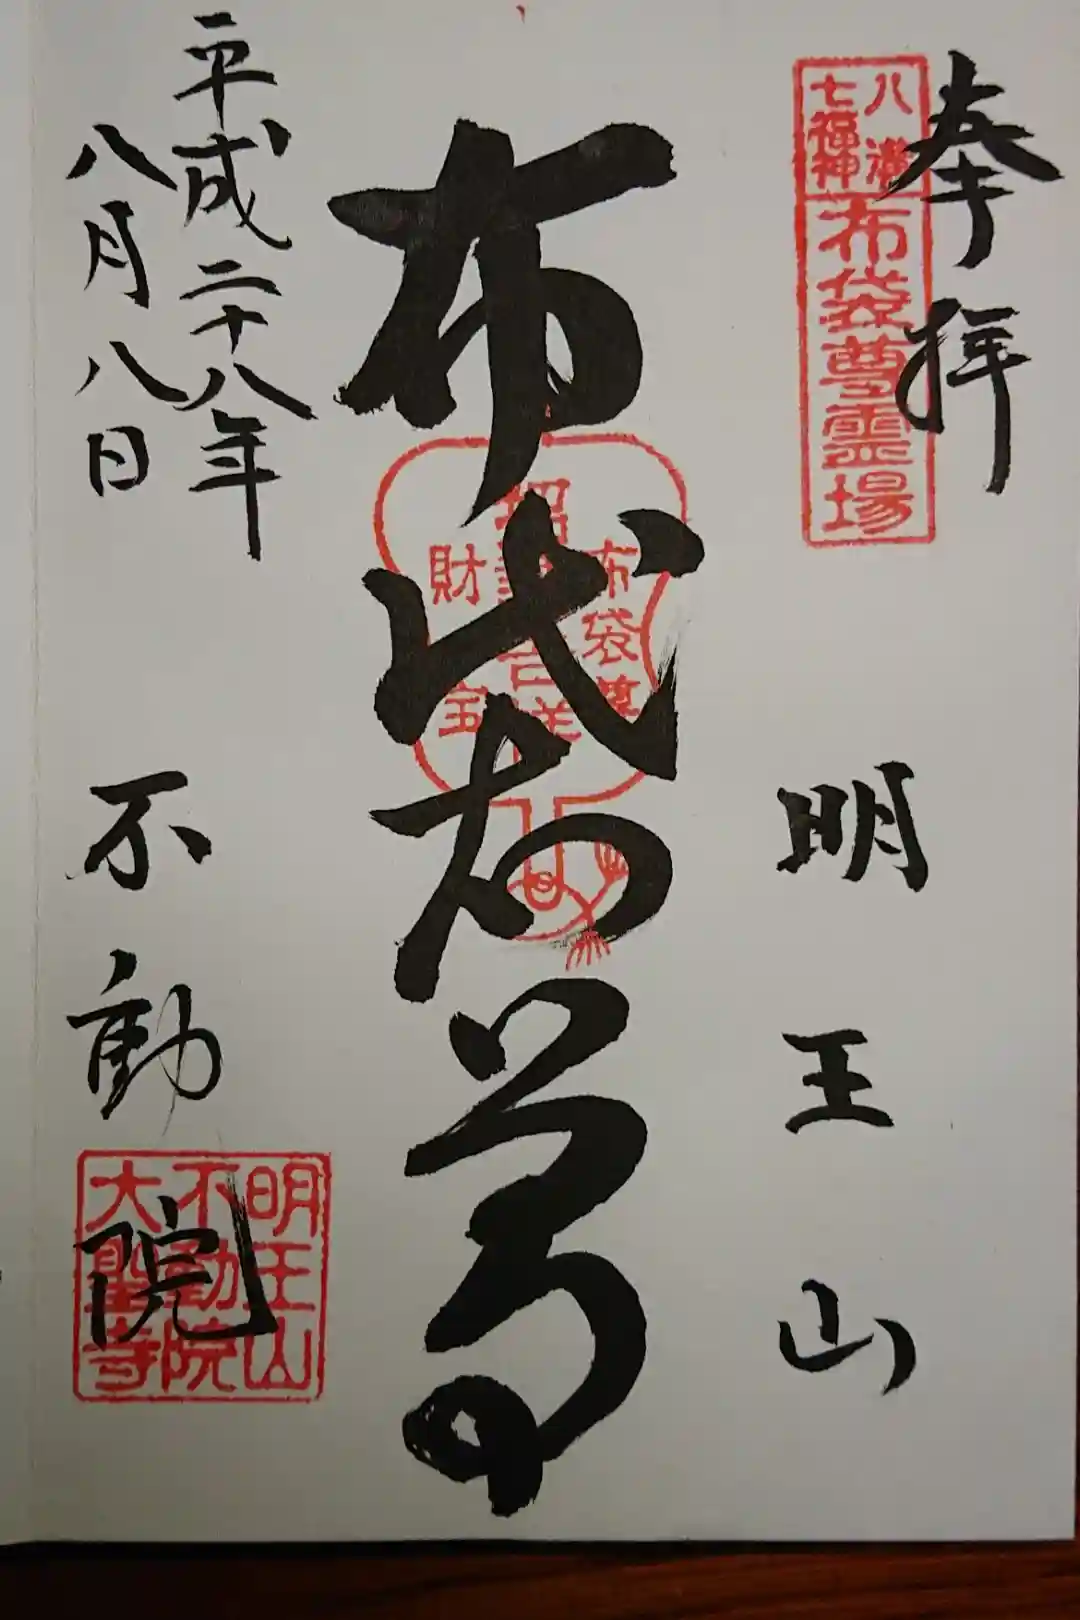 奉拝
八溝
七福神
布袋尊霊場
明王山
布袋尊
布袋尊
招
吉祥
財宝
平成二十八年
八月八日
不動院
明王山
不動院
大聖寺